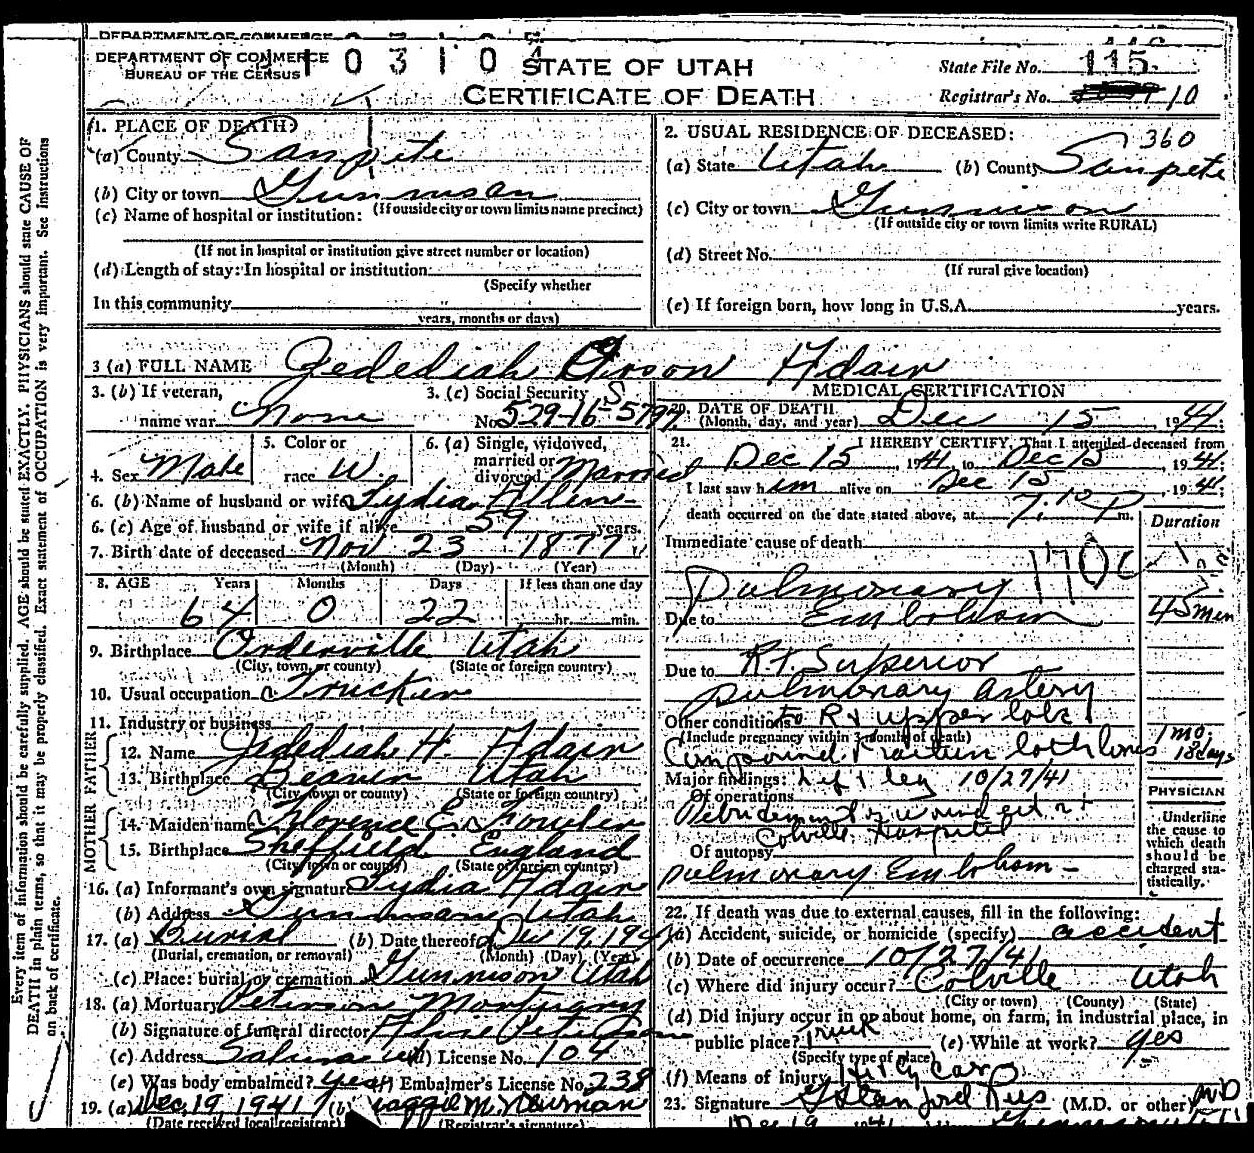 DEPARTMENT OF COMMERCE
DEPARTMENT OF COMMERCE
BUREAU OF THE CENSUS
1 0 3 1 0 4
STATE OF UTAH
CERTIFICATE OF DEATH
State File No. 115
Registrar's No. 10
1. PLACE OF DEATH:
(a) County Sanpete
(b) City or town Gunnison
(If outside city or town limits name precinct)
(c) Name of hospital or institution:
(If not in hospital or institution give street number or location)
(d) Length of stay: In hospital or institution:
(Specify whether
In this community
years, months or days)
2. USUAL RESIDENCE OF DECEASED: 360
(a) State Utah (b) County Sanpete
(c) City or town Gunnison
(If outside city or town limits write RURAL)
(d) Street No.
(If rural give location)
(e) If foreign born, how long in U.S.A. years.
3 (a) FULL NAME Jedediah Grson Adair
3. (b) If veteran, name war None
3. (c) Social Security No. 529-16-5797
4. Sex Male
5. Color or race W.
6. (a) Single, widowed, married or divorced Married
6. (b) Name of husband or wife Lydia Allen
6. (c) Age of husband or wife if alive 59 years.
7. Birth date of deceased Nov 23 1877
(Month) (Day) (Year)
8. AGE Years Months Days If less than one day
64 0 22 hr. min.
9. Birthplace Orderville Utah
(City, town, or county) (State or foreign country)
10. Usual occupation Trucker
11. Industry or business
FATHER
12. Name Jedediah H. Adair
13. Birthplace Beaver Utah
(City, town or county) (State or foreign country)
MOTHER
14. Maiden name Florence E. Fowler
15. Birthplace Sheffield England
(City, town or county) (State or foreign country)
16. (a) Informant's own signature Lydia Adair
(b) Address Gunnison Utah
17. (a) Burial (b) Date thereof Dec 19, 1941
(Burial, cremation, or removal) (Month) (Day) (Year)
(c) Place: burial or cremation Gunnison Utah
18. (a) Mortuary Peterson Mortuary
(b) Signature of funeral director Peterson
(c) Address Salina Ut (d) License No. 104
(e) Was body embalmed? yes (f) Embalmer's License No. 238
19. (a) Dec. 19, 1941 (b) M. Newman
(Date received local registrar) (Registrar's signature)
MEDICAL CERTIFICATION
20. DATE OF DEATH
(Month, day, and year) Dec 15, 1941
21. I HEREBY CERTIFY, That I attended deceased from
Dec 15, 1941 to Dec 15, 1941;
I last saw him alive on Dec 15, 1941;
death occurred on the date stated above, at 7:10 P m.
Duration
Immediate cause of death
Pulmonary 170c
Due to Embolism 45 min
Due to Rt. Superior
pulmonary artery
Other conditions to Rt upper lobe
(Include pregnancy within 3 months of death)
Compound Fracture both bones 1 mo, 18 days
Major findings: Left leg 10/27/41
Of operations
Debridement of wound
Colville Hospital
Of autopsy
Pulmonary Embolism -
PHYSICIAN
Underline the cause to which death should be charged statistically.
22. If death was due to external causes, fill in the following:
(a) Accident, suicide, or homicide (specify) accident
(b) Date of occurrence 10/27/41
(c) Where did injury occur? Colville Utah
(City or town) (County) (State)
(d) Did injury occur in or about home, on farm, in industrial place, in
public place? Truck (e) While at work? yes
(Specify type of place)
(f) Means of injury Hit by Car
23. Signature G Stanford Rees (M.D. or other) MD
Dec 19 1941
Every item of information should be carefully supplied. AGE should be stated EXACTLY. PHYSICIANS should state CAUSE OF
DEATH in plain terms, so that it may be properly classified. Exact statement of OCCUPATION is very important. See Instructions
on back of certificate.